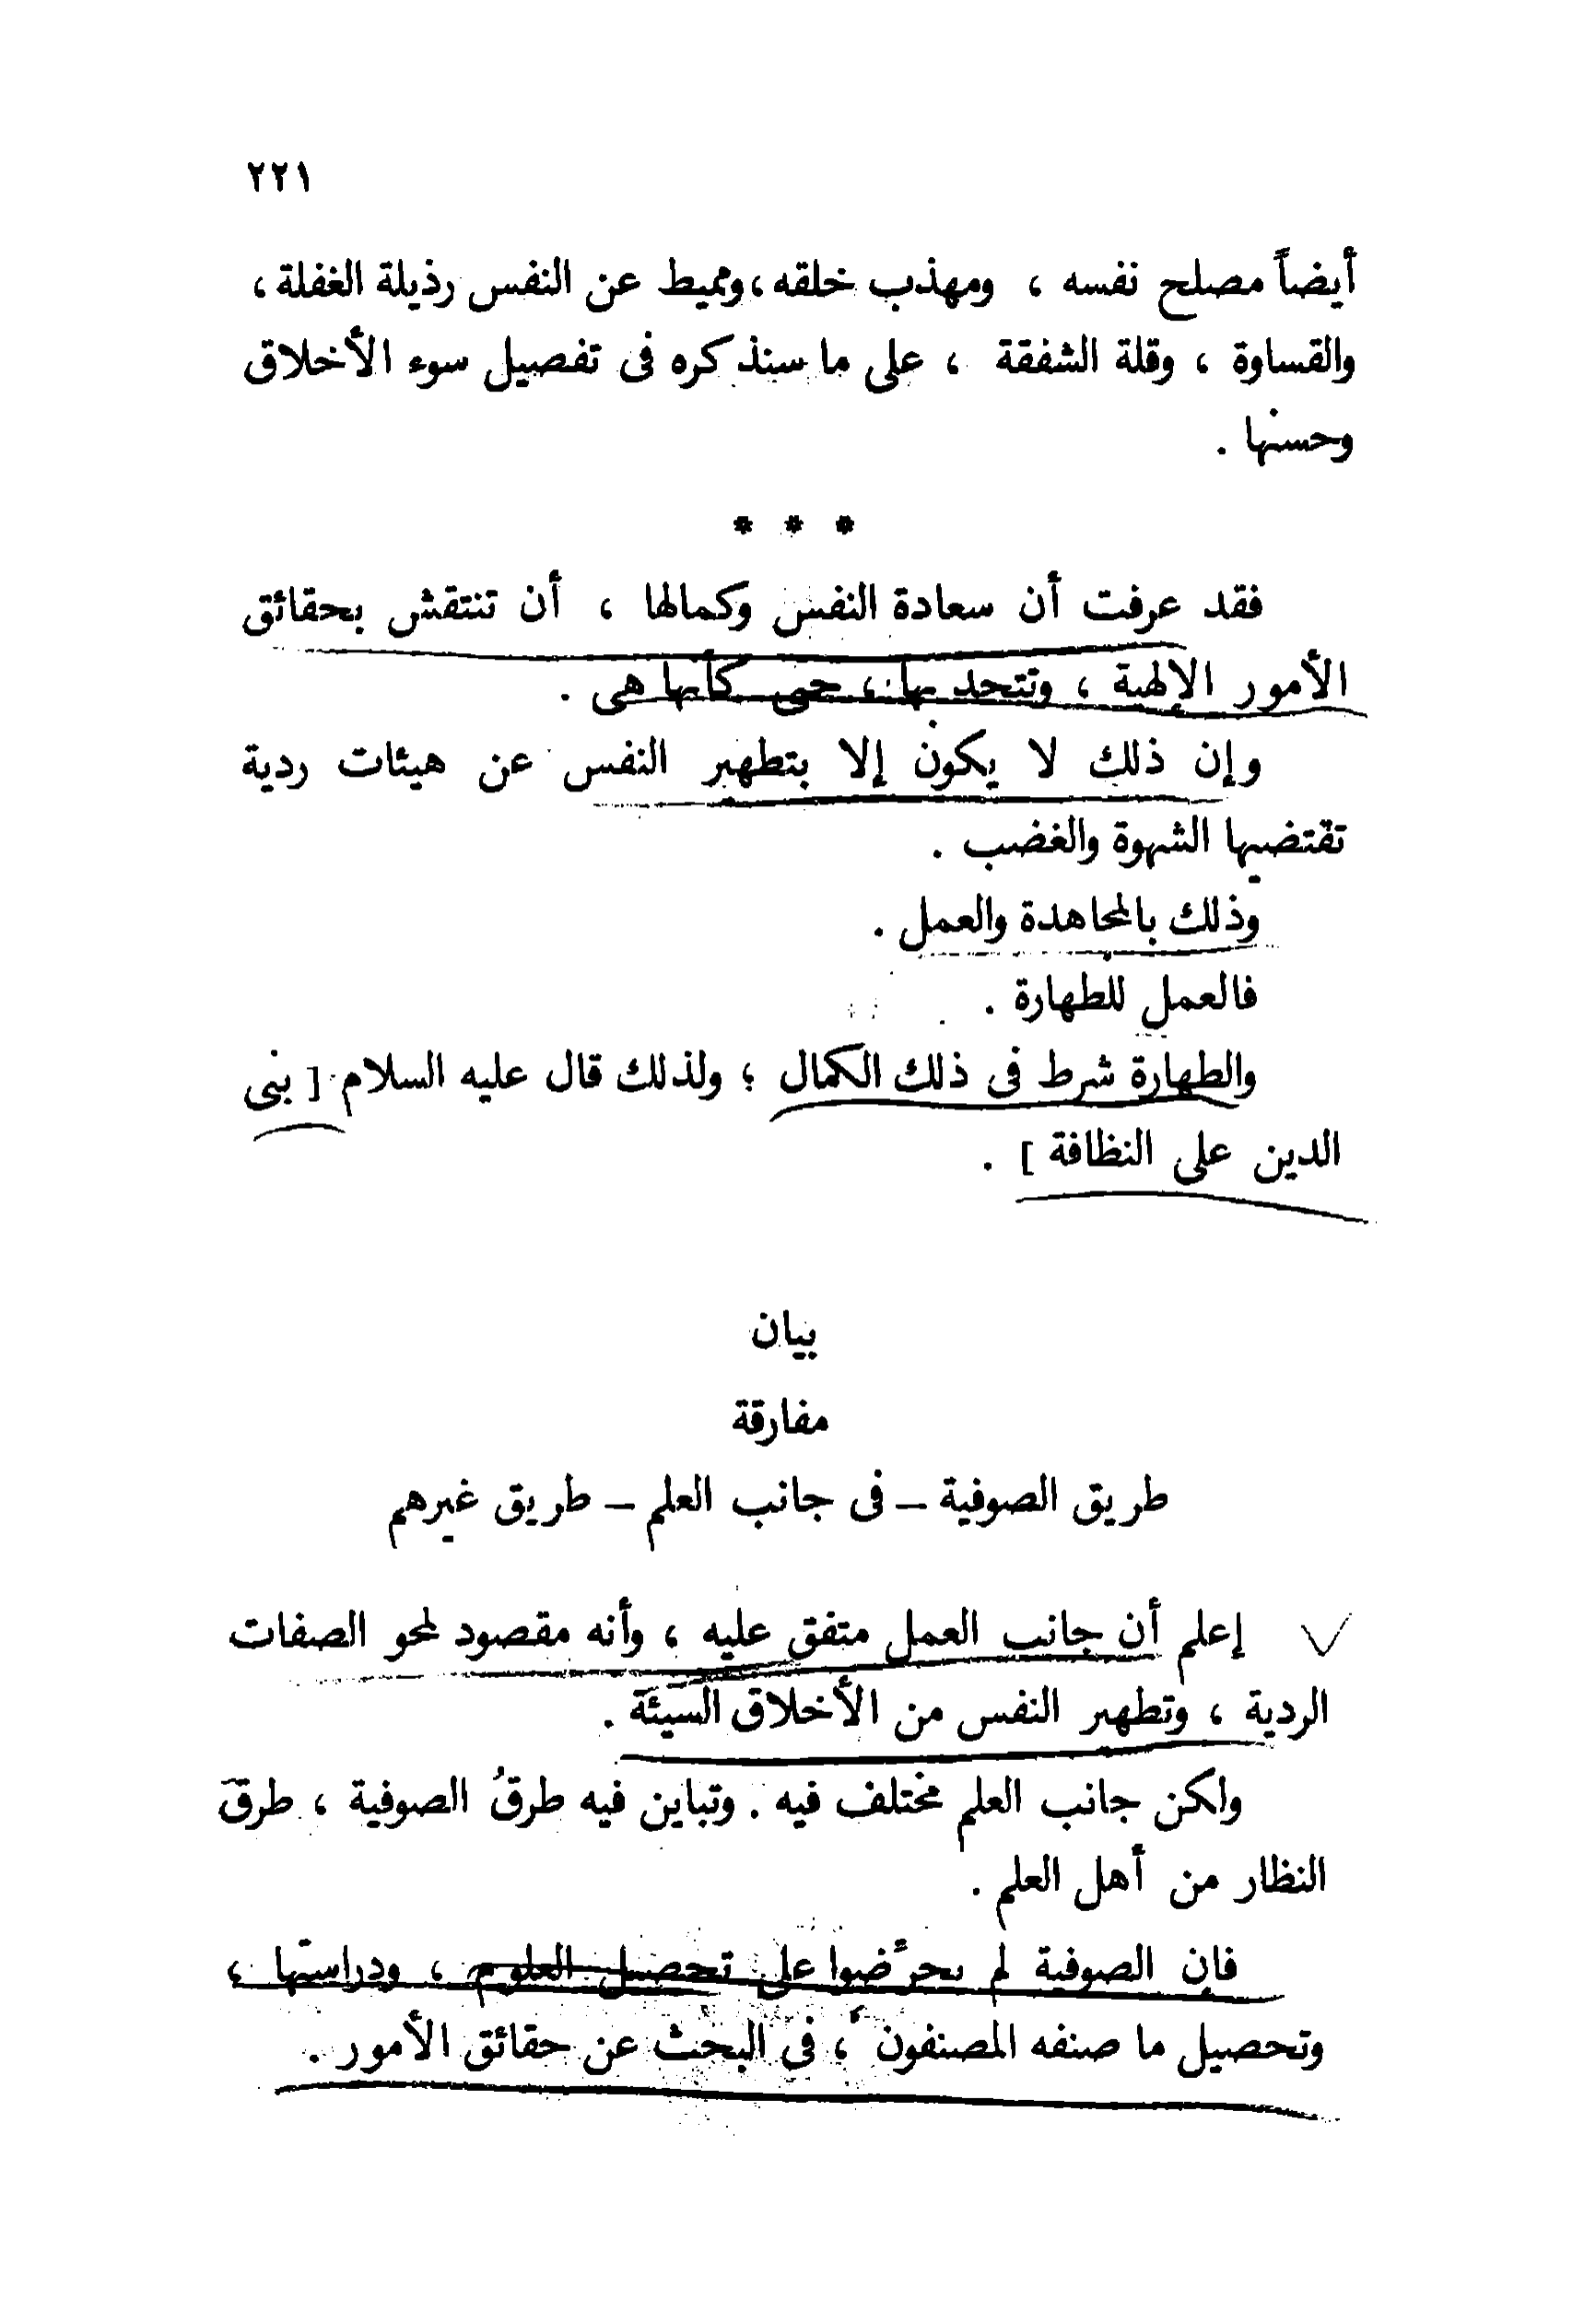 ٢٢١
أيضاً مصلح نفسه ، ومهذب خلقه ، ومميط عن النفس رذيلة الغفلة ،
والقساوة ، وقلة الشفقة ، على ما سنذكره فى تفصيل سوء الأخلاق
وحسنها .
* * *
فقد عرفت أن سعادة النفس وكمالها ، أن تنتقش بحقائق
الأمور الإلهية ، وتتحد بها ، حتى كأنها هى .
وإن ذلك لا يكون إلا بتطهير النفس عن هيئات ردية
تقتضيها الشهوة والغضب .
وذلك بالمجاهدة والعمل .
فالعمل للطهارة .
والطهارة شرط فى ذلك الكمال ؛ ولذلك قال عليه السلام [ بنى
الدين على النظافة ] .
بيان
مفارقة
طريق الصوفية – فى جانب العلم – طريق غيرهم
إعلم أن جانب العمل متفق عليه ، وأنه مقصود لمحو الصفات
الردية ، وتطهير النفس من الأخلاق السيئة .
ولكن جانب العلم مختلف فيه . وتباين فيه طرقُ الصوفية ، طرقَ
النظار من أهل العلم .
فإن الصوفية لم يحرِّضوا على تحصيل العلوم ، ودراستها ،
وتحصيل ما صنفه المصنفون ، فى البحث عن حقائق الأمور .